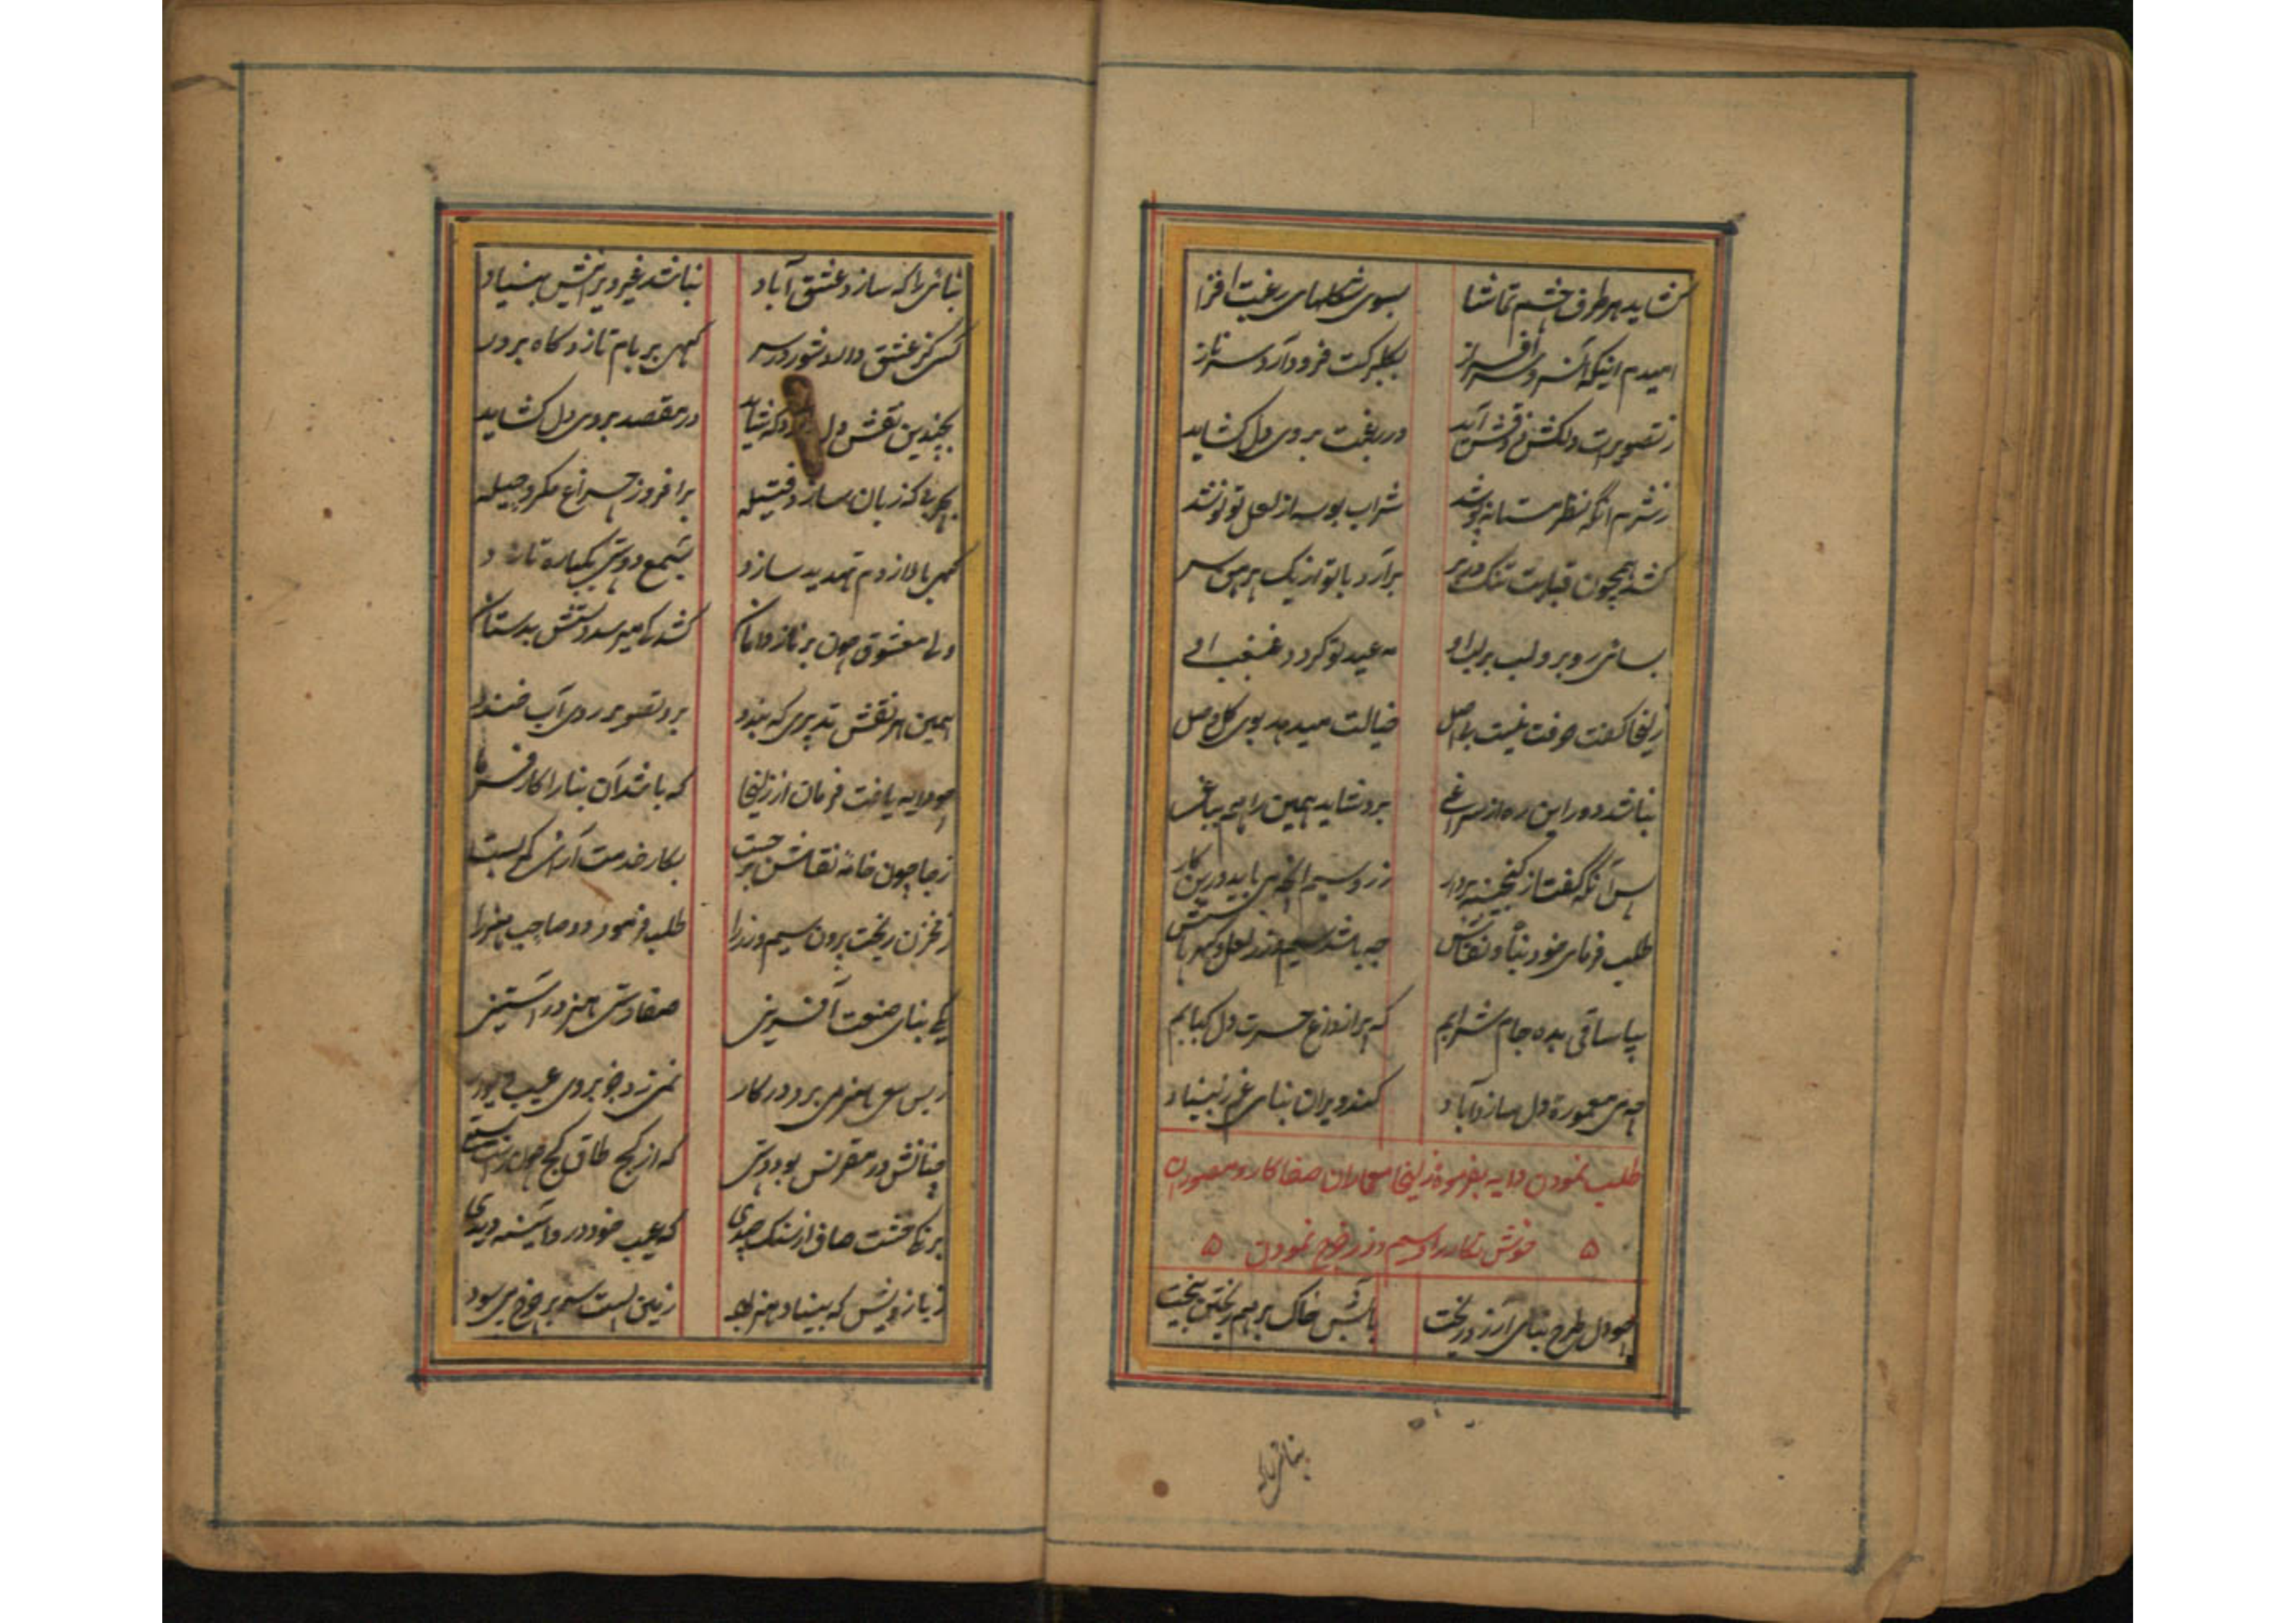 گشاید هر طرف چشم تماشا بسوی شکلهای رغبت افزا
امیدم اینکه آن سرو سرافراز بگلبرکت فرود آرد سر ناز
ز تصویرت دلکش ذوقش آید در رغبت بروی دل کشاید
ز شرم آنگه نظر مستانه پوشد شراب بوسه از لعل تو نوشد
کشد همچون قبایت تنک در بر برآرد با تو از یک پیرهن سر
بسائی رو برو لب بر لب او مه عید تو کردد غبغب او
زلیخا کفت حرفت نیست بی اصل خیالت میدهد بوی کل وصل
نباشد دور این ره از سراغی برد شاید همین راهم بباغی
پس آنگه کفت از کنجینه بردار زر و سیم آنچه می باید درین کار
طلب فرمای خود بنا و نقاش چه باشد سیم و زر لعل و کهر باش
بیا ساقی بده جام شرابم که پر از داغ حسرت دل کبابم
چه می معموره دل سازد آباد کند ویران بنای غم ز بنیاد
طلب نمودن دایه بفرموده زلیخا معماران صفا کار و مصوران
خوش نکار را و سیم و زر خرج نمودن
چو دل طرح بنای آرزو ریخت بآتش خاک برهم ریختن بیخت
بنائی را
بنائی را که سازد عشق آباد نباشد غیر ویرانیش بنیاد
کسی کز عشق دارد شور در سر کهی بر بام تازد کاه بر در
بچندین نقش دل که شاید در مقصد بروی دل کشاید
بچربی که زبان سازد فتیله برافروزد چراغ مکر و حیله
کهی با او از دم تهدید سازد بشمع دوستی یکباره تازد
ولی معشوق چون بر ناز دامان کشد کی میرسد دستش بدستان
همین هر نقش تدبیری که بندد برو تصویر روی آب خندد
چو دایه یافت فرمان از زلیخا که باشد آن بنا را کارفرما
ز جا چون خامه نقاش برجست بکار خدمت آرائی کمر بست
ز مخزن ریخت بیرون سیم و زر را طلب فرمود دو صاحب هنر را
یکی بنای صنعت آفرینی صفا دستی هنر در آستینی
ز بس سعی هنر می برد در کار نمی زد جز بروی عیب دیوار
چنانش در مقرنس بود دستی که از کج طاق کج چون
بر نکی خشت صاف از سنک چیدی که عیب خود در و آئینه دیدی
ز بازویش که بنیاد هنر بود زمین پست سر بر چرخ می سود